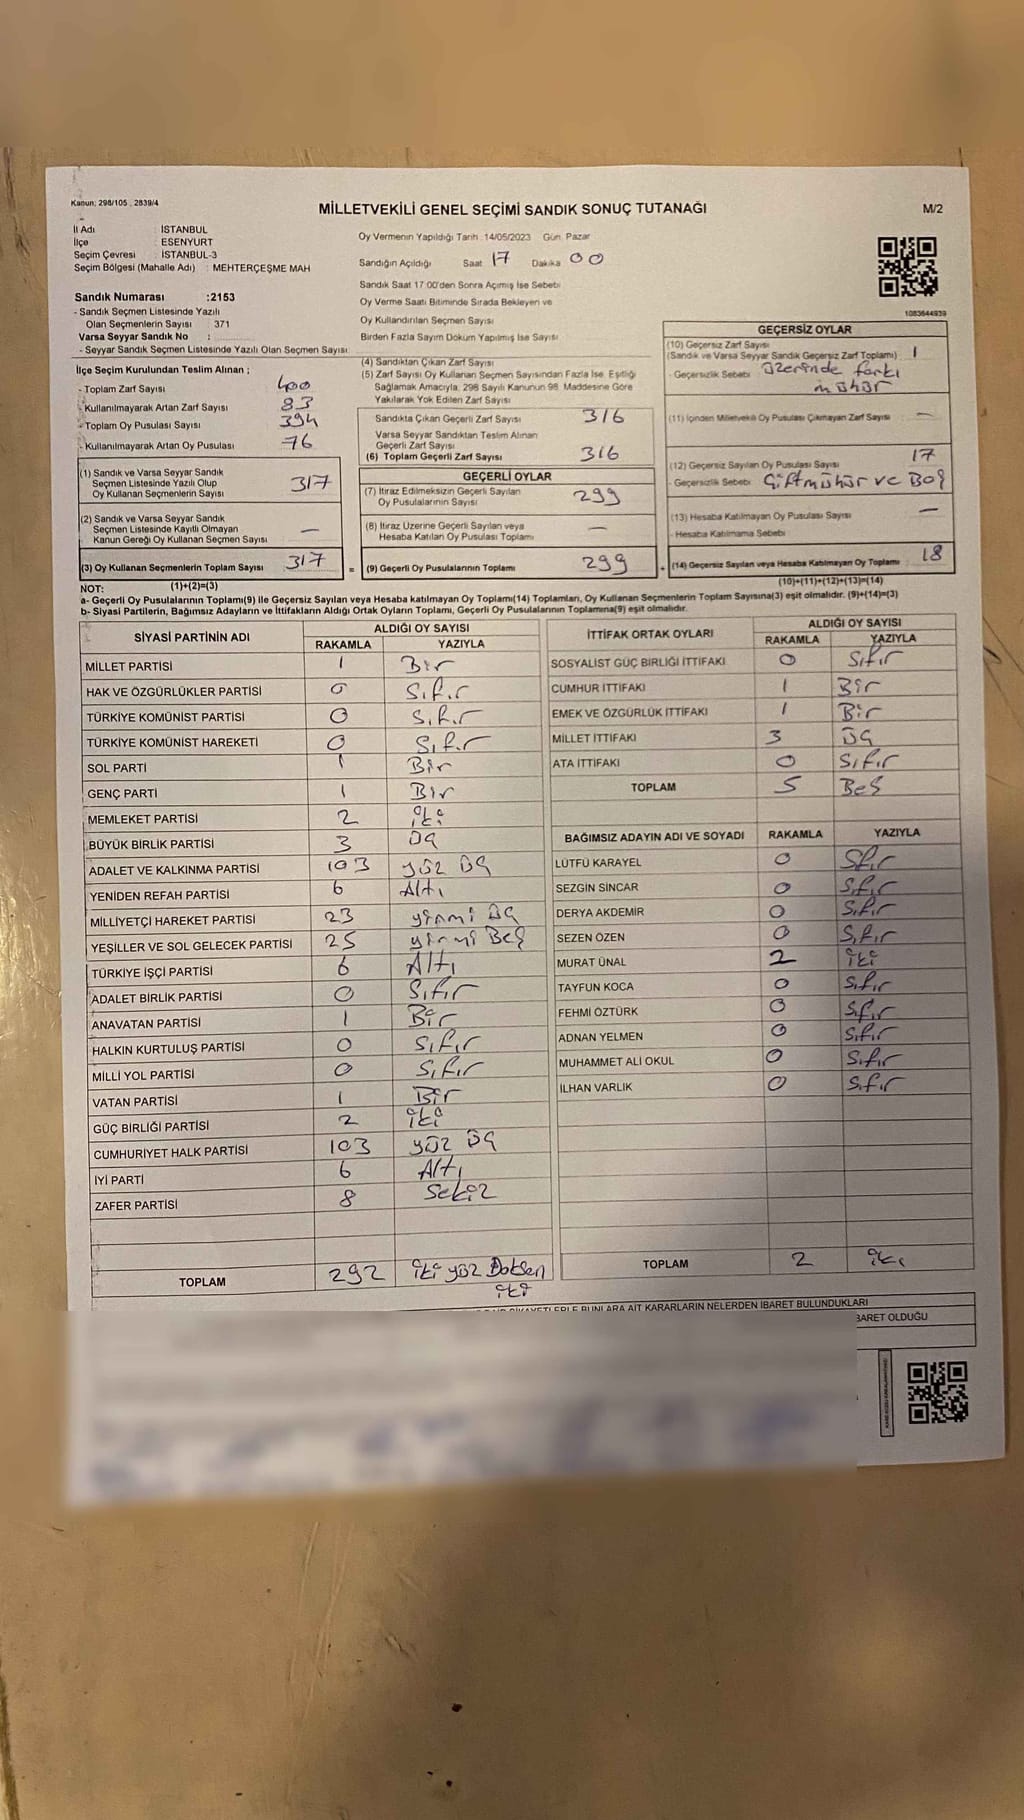 Kanun: 298/105 , 2839/4
MİLLETVEKİLİ GENEL SEÇİMİ SANDIK SONUÇ TUTANAĞI
M/2
İl Adı : İSTANBUL
İlçe : ESENYURT
Seçim Çevresi : İSTANBUL-3
Seçim Bölgesi (Mahalle Adı) : MEHTERÇEŞME MAH
Sandık Numarası :2153
- Sandık Seçmen Listesinde Yazılı
Olan Seçmenlerin Sayısı : 371
Varsa Seyyar Sandık No :
- Seyyar Sandık Seçmen Listesinde Yazılı Olan Seçmen Sayısı:
Oy Vermenin Yapıldığı Tarih :14/05/2023 Gün: Pazar
Sandığın Açıldığı Saat 17 Dakika 00
Sandık Saat 17:00'den Sonra Açımış İse Sebebi
Oy Verme Saati Bitiminde Sırada Bekleyen ve
Oy Kullandırılan Seçmen Sayısı
Birden Fazla Sayım Döküm Yapılmış İse Sayısı
1083644939
İlçe Seçim Kurulundan Teslim Alınan ;
- Toplam Zarf Sayısı 400
- Kullanılmayarak Artan Zarf Sayısı 83
- Toplam Oy Pusulası Sayısı 394
- Kullanılmayarak Artan Oy Pusulası 76
(1) Sandık ve Varsa Seyyar Sandık
Seçmen Listesinde Yazılı Olup
Oy Kullanan Seçmenlerin Sayısı 317
(2) Sandık ve Varsa Seyyar Sandık
Seçmen Listesinde Kayıtlı Olmayan
Kanun Gereği Oy Kullanan Seçmen Sayısı —
(3) Oy Kullanan Seçmenlerin Toplam Sayısı 317
(1)+(2)=(3)
(4) Sandıktan Çıkan Zarf Sayısı
(5) Zarf Sayısı Oy Kullanan Seçmen Sayısından Fazla İse, Eşitliği
Sağlamak Amacıyla, 298 Sayılı Kanunun 98. Maddesine Göre
Yakılarak Yok Edilen Zarf Sayısı
Sandıkta Çıkan Geçerli Zarf Sayısı 316
Varsa Seyyar Sandıktan Teslim Alınan
Geçerli Zarf Sayısı
(6) Toplam Geçerli Zarf Sayısı 316
GEÇERLİ OYLAR
(7) İtiraz Edilmeksizin Geçerli Sayılan
Oy Pusulalarının Sayısı 299
(8) İtiraz Üzerine Geçerli Sayılan veya
Hesaba Katılan Oy Pusulası Toplamı —
= (9) Geçerli Oy Pusulalarının Toplamı 299
GEÇERSİZ OYLAR
(10) Geçersiz Zarf Sayısı
(Sandık ve Varsa Seyyar Sandık Geçersiz Zarf Toplamı) 1
- Geçersizlik Sebebi üzerinde farklı
mühür
(11) İçinden Milletvekili Oy Pusulası Çıkmayan Zarf Sayısı —
(12) Geçersiz Sayılan Oy Pusulası Sayısı 17
- Geçersizlik Sebebi Çift mühür ve Boş
(13) Hesaba Katılmayan Oy Pusulası Sayısı —
- Hesaba Katılmama Sebebi
+ (14) Geçersiz Sayılan veya Hesaba Katılmayan Oy Toplamı 18
(10)+(11)+(12)+(13)=(14)
NOT:
a- Geçerli Oy Pusulalarının Toplamı(9) ile Geçersiz Sayılan veya Hesaba katılmayan Oy Toplamı(14) Toplamları, Oy Kullanan Seçmenlerin Toplam Sayısına(3) eşit olmalıdır. (9)+(14)=(3)
b- Siyasi Partilerin, Bağımsız Adayların ve İttifakların Aldığı Ortak Oyların Toplamı, Geçerli Oy Pusulalarının Toplamına(9) eşit olmalıdır.
SİYASİ PARTİNİN ADI ALDIĞI OY SAYISI
RAKAMLA YAZIYLA
MİLLET PARTİSİ 1 Bir
HAK VE ÖZGÜRLÜKLER PARTİSİ 0 Sıfır
TÜRKİYE KOMÜNİST PARTİSİ 0 Sıfır
TÜRKİYE KOMÜNİST HAREKETİ 0 Sıfır
SOL PARTİ 1 Bir
GENÇ PARTİ 1 Bir
MEMLEKET PARTİSİ 2 iki
BÜYÜK BİRLİK PARTİSİ 3 üç
ADALET VE KALKINMA PARTİSİ 103 yüz üç
YENİDEN REFAH PARTİSİ 6 Altı
MİLLİYETÇİ HAREKET PARTİSİ 23 yirmi üç
YEŞİLLER VE SOL GELECEK PARTİSİ 25 yirmi Beş
TÜRKİYE İŞÇİ PARTİSİ 6 Altı
ADALET BİRLİK PARTİSİ 0 Sıfır
ANAVATAN PARTİSİ 1 Bir
HALKIN KURTULUŞ PARTİSİ 0 Sıfır
MİLLİ YOL PARTİSİ 0 Sıfır
VATAN PARTİSİ 1 Bir
GÜÇ BİRLİĞİ PARTİSİ 2 iki
CUMHURİYET HALK PARTİSİ 103 yüz üç
İYİ PARTİ 6 Altı
ZAFER PARTİSİ 8 Sekiz
TOPLAM 292 iki yüz Doksan
iki
İTTİFAK ORTAK OYLARI ALDIĞI OY SAYISI
RAKAMLA YAZIYLA
SOSYALİST GÜÇ BİRLİĞİ İTTİFAKI 0 Sıfır
CUMHUR İTTİFAKI 1 Bir
EMEK VE ÖZGÜRLÜK İTTİFAKI 1 Bir
MİLLET İTTİFAKI 3 üç
ATA İTTİFAKI 0 Sıfır
TOPLAM 5 Beş
BAĞIMSIZ ADAYIN ADI VE SOYADI RAKAMLA YAZIYLA
LÜTFÜ KARAYEL 0 Sıfır
SEZGİN SİNCAR 0 Sıfır
DERYA AKDEMİR 0 Sıfır
SEZEN ÖZEN 0 Sıfır
MURAT ÜNAL 2 iki
TAYFUN KOCA 0 Sıfır
FEHMİ ÖZTÜRK 0 Sıfır
ADNAN YELMEN 0 Sıfır
MUHAMMET ALİ OKUL 0 Sıfır
İLHAN VARLIK 0 Sıfır
TOPLAM 2 iki
BUNLARA AİT KARARLARIN NELERDEN İBARET BULUNDUKLARI
OLDUĞU